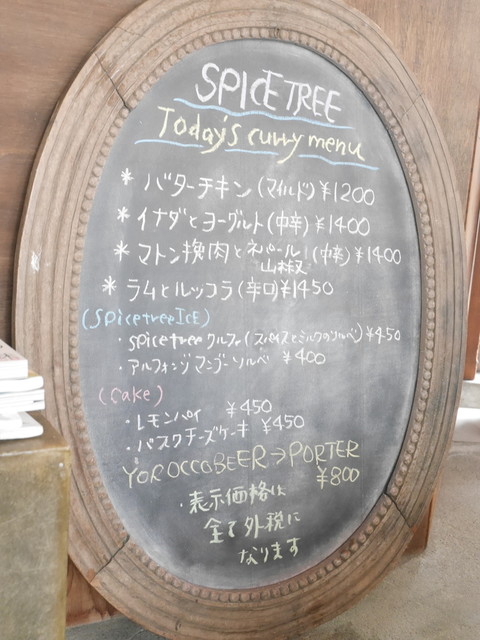 SPICE TREE
Today's curry menu
* バターチキン (マイルド) ¥1200
* イナダとヨーグルト (中辛) ¥1400
* マトン挽肉とネパール山椒 (中辛) ¥1400
* ラムとルッコラ (辛口) ¥1450
(Spicetree ICE)
・spicetree クルフィ (スパイスとミルクのソルベ) ¥450
・アルフォンゾマンゴーソルベ ¥400
(Cake)
・レモンパイ ¥450
・バスクチーズケーキ ¥450
YOROCCOBEER→PORTER
¥800
・表示価格は
全て外税に
なります